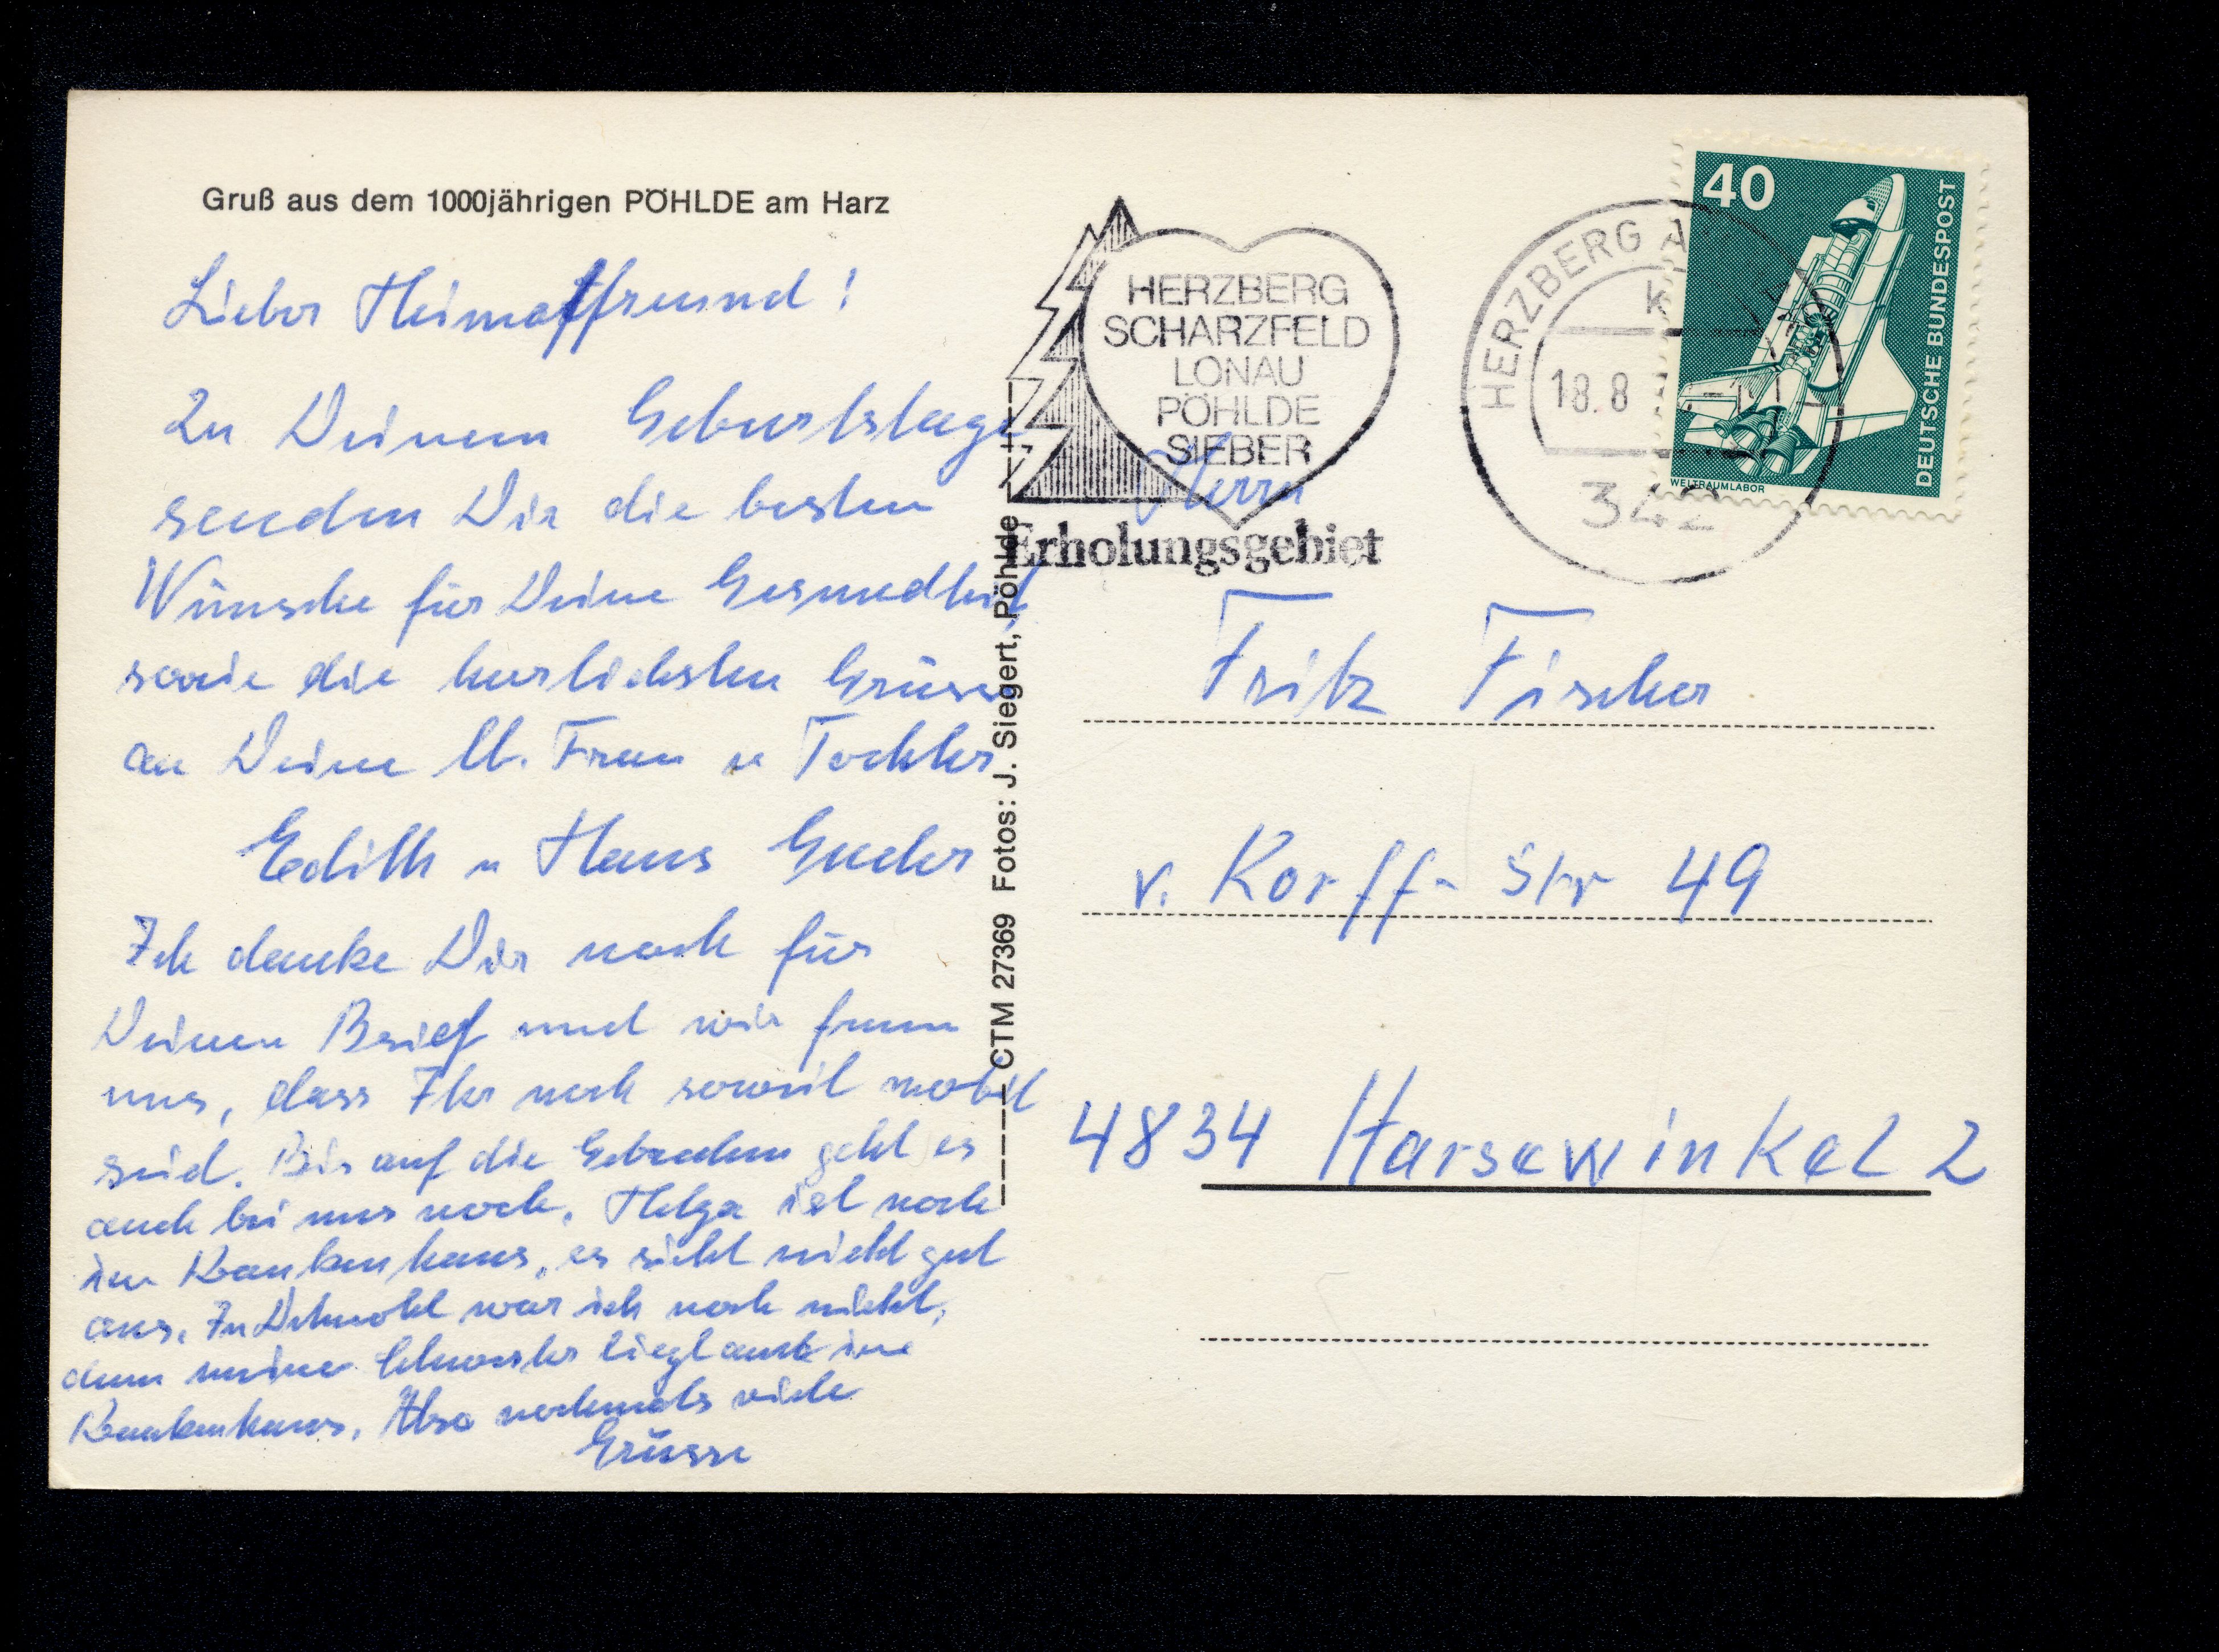 Gruß aus dem 1000jährigen PÖHLDE am Harz
Lieber Heimatfreund!
Zu Deinem Geburtstage
senden Dir die besten
Wünsche für Deine Gesundheit,
sowie die herzlichsten Grüsse
an Deine lb. Frau u Tochter
Edith u Hans Guder
Ich danke Dir noch für
Deinen Brief und wir freuen
uns, dass Ihr noch soviel mobil
seid. Bis auf die Gebrechen geht es
auch bei uns noch. Helga ist noch
im Krankenhaus, es sieht nicht gut
aus. In Detmold war ich noch nicht,
denn meine Schwester liegt auch im
Krankenhaus. Also nochmals viele
Grüsse
CTM 27369 Fotos: J. Siegert, Pöhlde
HERZBERG
SCHARZFELD
LONAU
PÖHLDE
SIEBER
Erholungsgebiet
HERZBERG A
18.8
342
40
DEUTSCHE BUNDESPOST
WELTRAUMLABOR
Herrn
Fritz Fischer
v. Korff-Str 49
4834 Harsewinkel 2